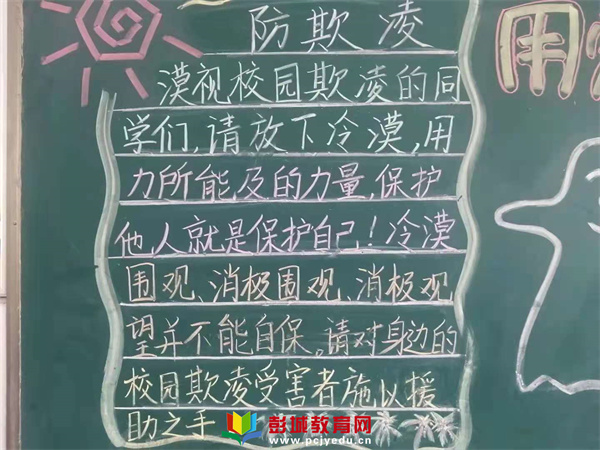 防欺凌
漠视校园欺凌的同
学们,请放下冷漠,用
力所能及的力量,保护
他人就是保护自己!冷漠
围观、消极围观、消极观
望并不能自保,请对身边的
校园欺凌受害者施以援
助之手
用
彭城教育网
www.pcjyedu.cn